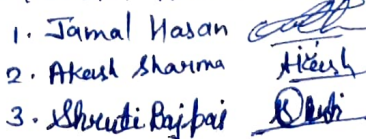 1. Jamal Hasan
2. Akash Sharma Akash
3. Shruti Bajpai